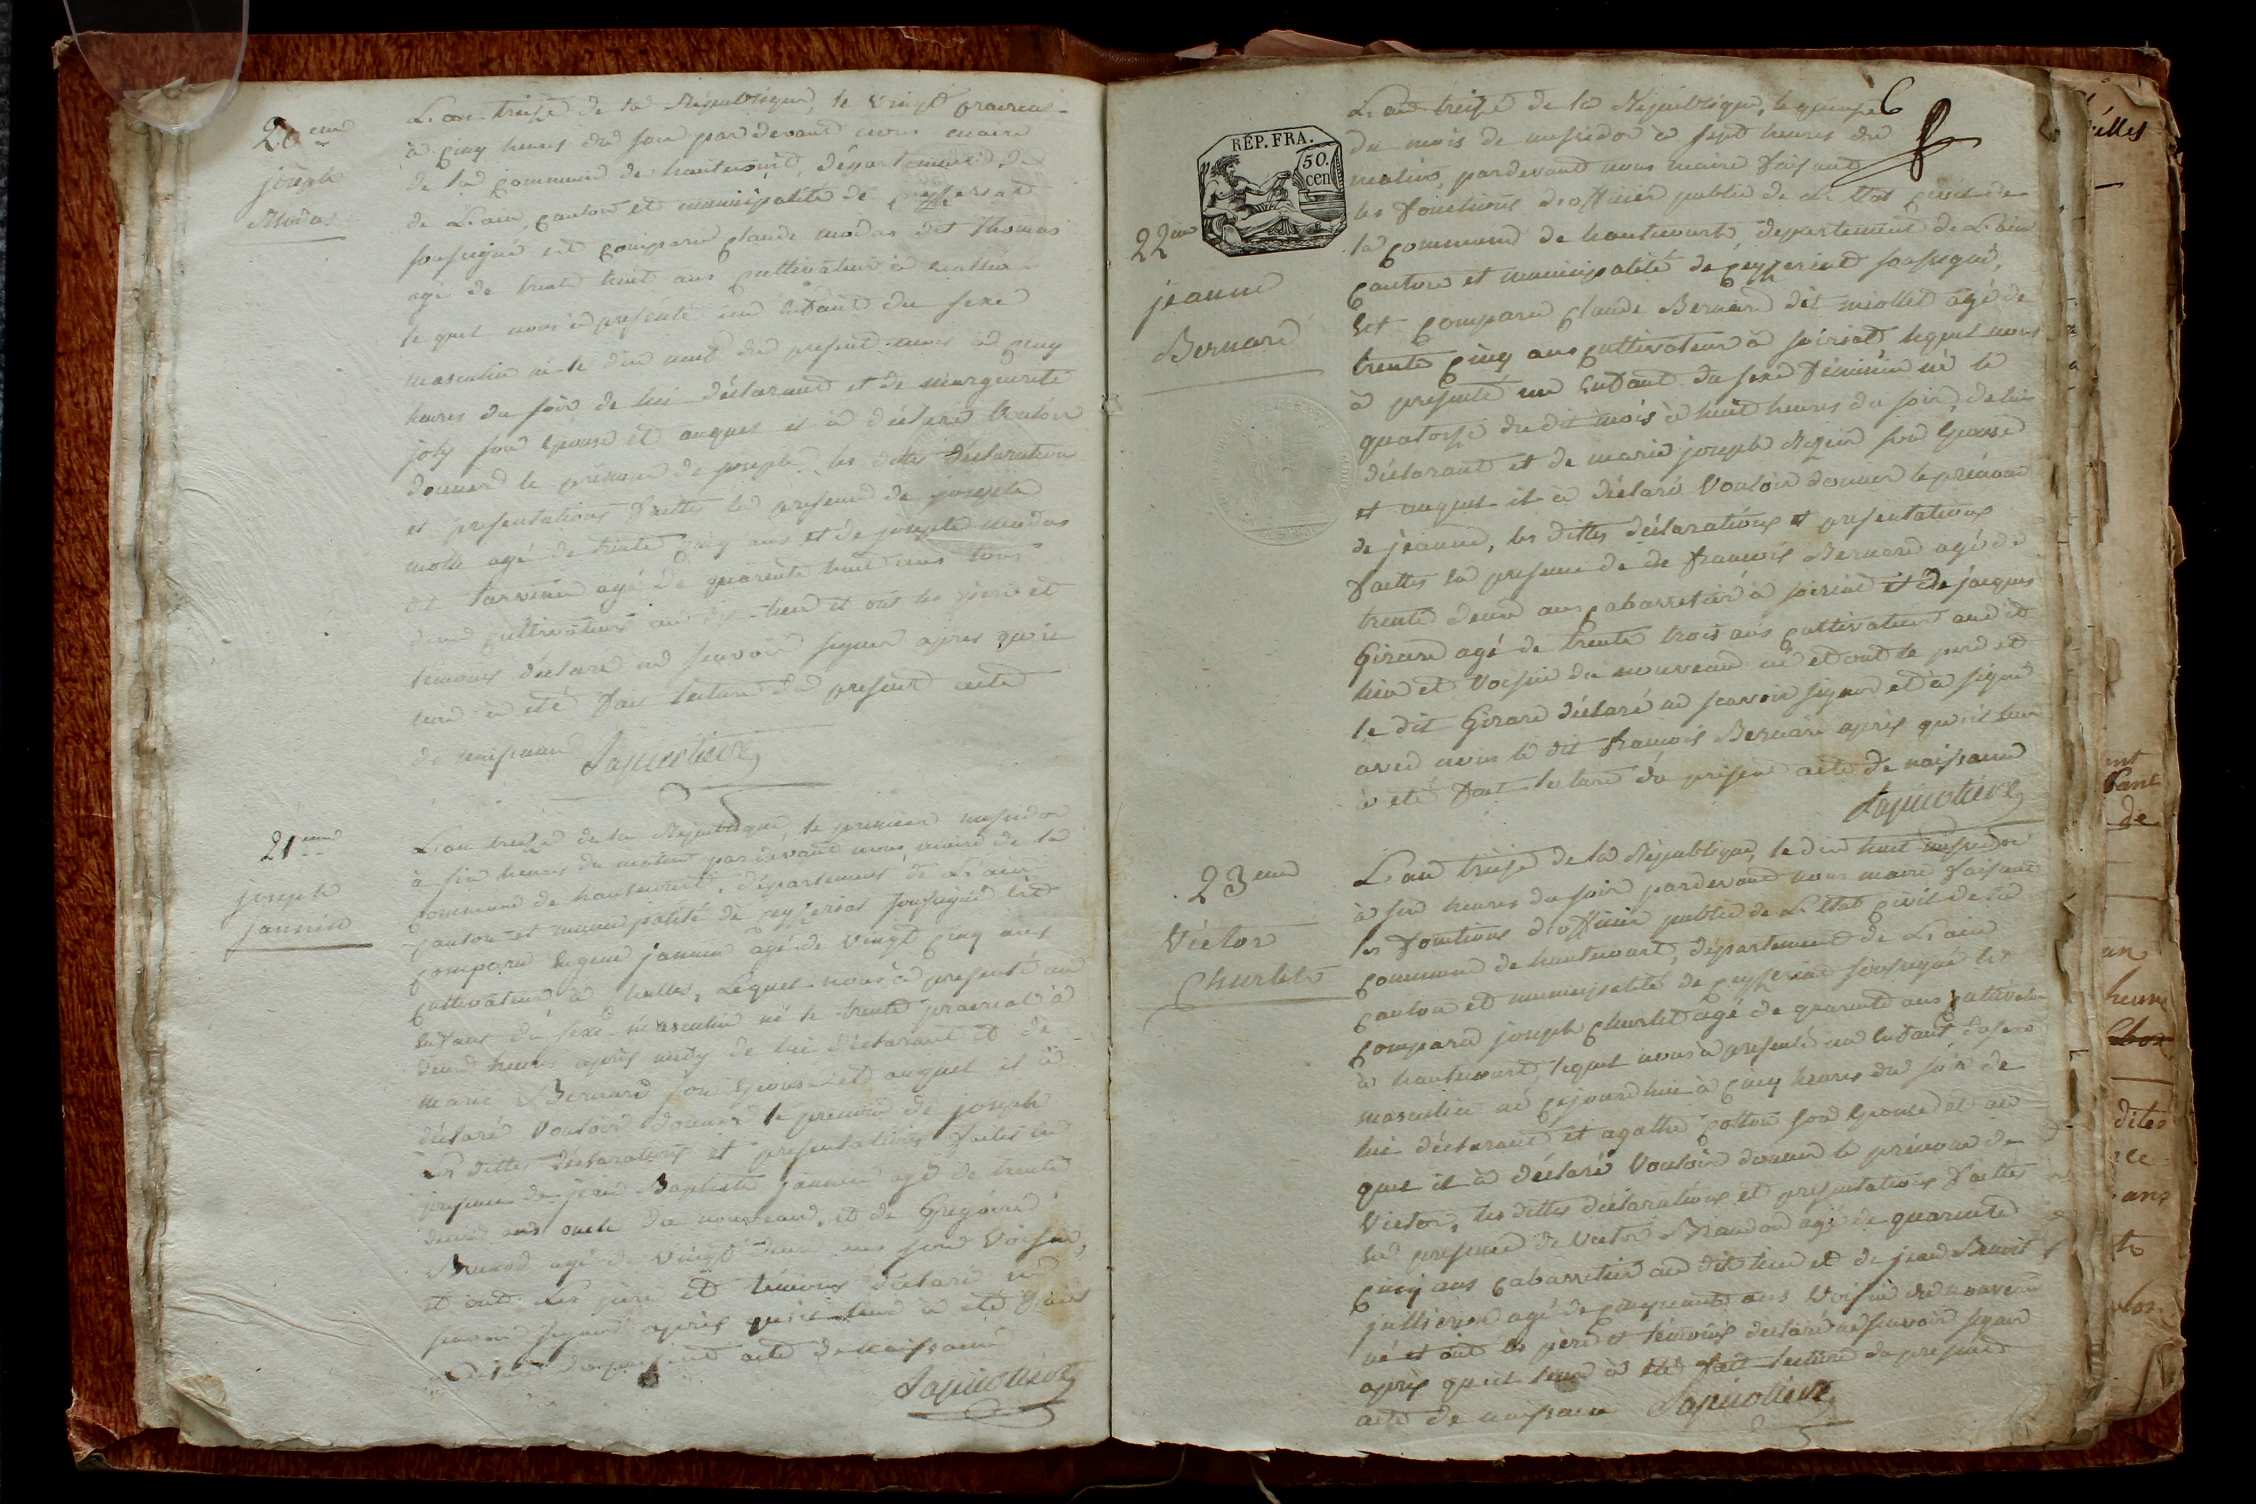 20eme
joseph
Modas
L'an treize de la République, le vingt prairial
à cinq heures du soir par devant nous maire
de la commune de hautecourt, département de
de L'ain, canton et municipalité de ceyzeriat
soussigné est comparu claude modas dit Thomas
agé de trente huit ans cultivateur à
le quel nous à presenté un enfant du sexe
masculin né le dix neuf du present mois à cinq
heures du soir de lui déclarant et de marguerite
joly son épouse et auquel il à déclaré vouloir
donner le prénom de joseph les dittes déclaration
et presentations faittes en presence de joseph
agé de trente cinq ans et de joseph modas
dit agé de quarente huit ans tous
deux cultivateurs au dit lieu et ont les père et
temoins déclaré ne scavoir signer apres qu'il
leur a été fait lecture du present acte
de naissance
21eme
joseph
jannin
L'an treize de la République, le premier messidor
à six heures du matin par devant nous maire de la
commune de hautecourt, département de L'ain
canton et municipalité de ceyzeriat soussigné est
comparu jannin agé de vingt cinq ans
cultivateur à , Lequel nous à presenté un
enfant du sexe masculin né le trente prairial à
deux heures après midy de lui déclarant et de
marie Bernard son épouse et auquel il à
déclaré vouloir donner le prenom de joseph
Les dittes déclarations et presentations faites en
presence de jean Baptiste jannin agé de trente
ans oncle du nouveau, et de Grégoire
agé de vingt deux ans son voisin,
et ont Les père et témoins déclaré ne
scavoir signer après qu'il leur à été fait
lecture du present acte de naissance
REP. FRA.
50.
cen
6
22eme
jeanne
Bernard
L'an treize de la République, le quinze
du mois de messidor à sept heures du
matin, pardevant nous maire faisant
les fonctions d'officier public de L'Etat civil de
la commune de hautecourt département de L'ain
canton et municipalité de ceyzeriat soussigné,
Est comparu claude Bernard dit miollet agé de
trente cinq ans cultivateur à soiriat lequel nous
à presenté un Enfant du sexe féminin né le
quatorze du dit mois à huit heures du soir, de lui
déclarant et de marie joseph son épouse
et auquel il à déclaré vouloir donner le prénom
de jeanne, les dittes déclarations et presentations
faittes en presence de de francois Bernard agé de
trente deux ans cabarretier à soiriat et de jacques
Girard agé de trente trois ans cultivateur au dit
lieu et voisin du nouveau né et ont le père et
le dit Girard déclaré ne scavoir signer et à signé
avec nous le dit francois Bernard après qu'il leur
à été fait lecture du présent acte de naissance
23eme
Victor
Churlet
L'an treize de la République, le dix huit messidor
à six heures du soir pardevant nous maire faisant
les fonctions d'officier public de L'Etat civil de la
commune de hautecourt, département de L'ain
canton et municipalité de ceyzeriat soussigné Est
comparu joseph Churlet agé de quarente ans cultivateur
à hautecourt, lequel nous à presenté un Enfant du sexe
masculin né cejourdhui à cinq heures du soir de
lui déclarant et agathe cotton son épouse et au
quel il à déclaré vouloir donner le prénom de
Victor, les dittes déclarations et presentations faittes
en presence de Victor agé de quarente
cinq ans cabarretier au dit lieu et de jean Benoit
jullieron agé de cinquante ans voisin du nouveau
né et ont les père et témoins déclaré ne scavoir signer
après qu'il leur à été fait lecture du present
acte de naissance